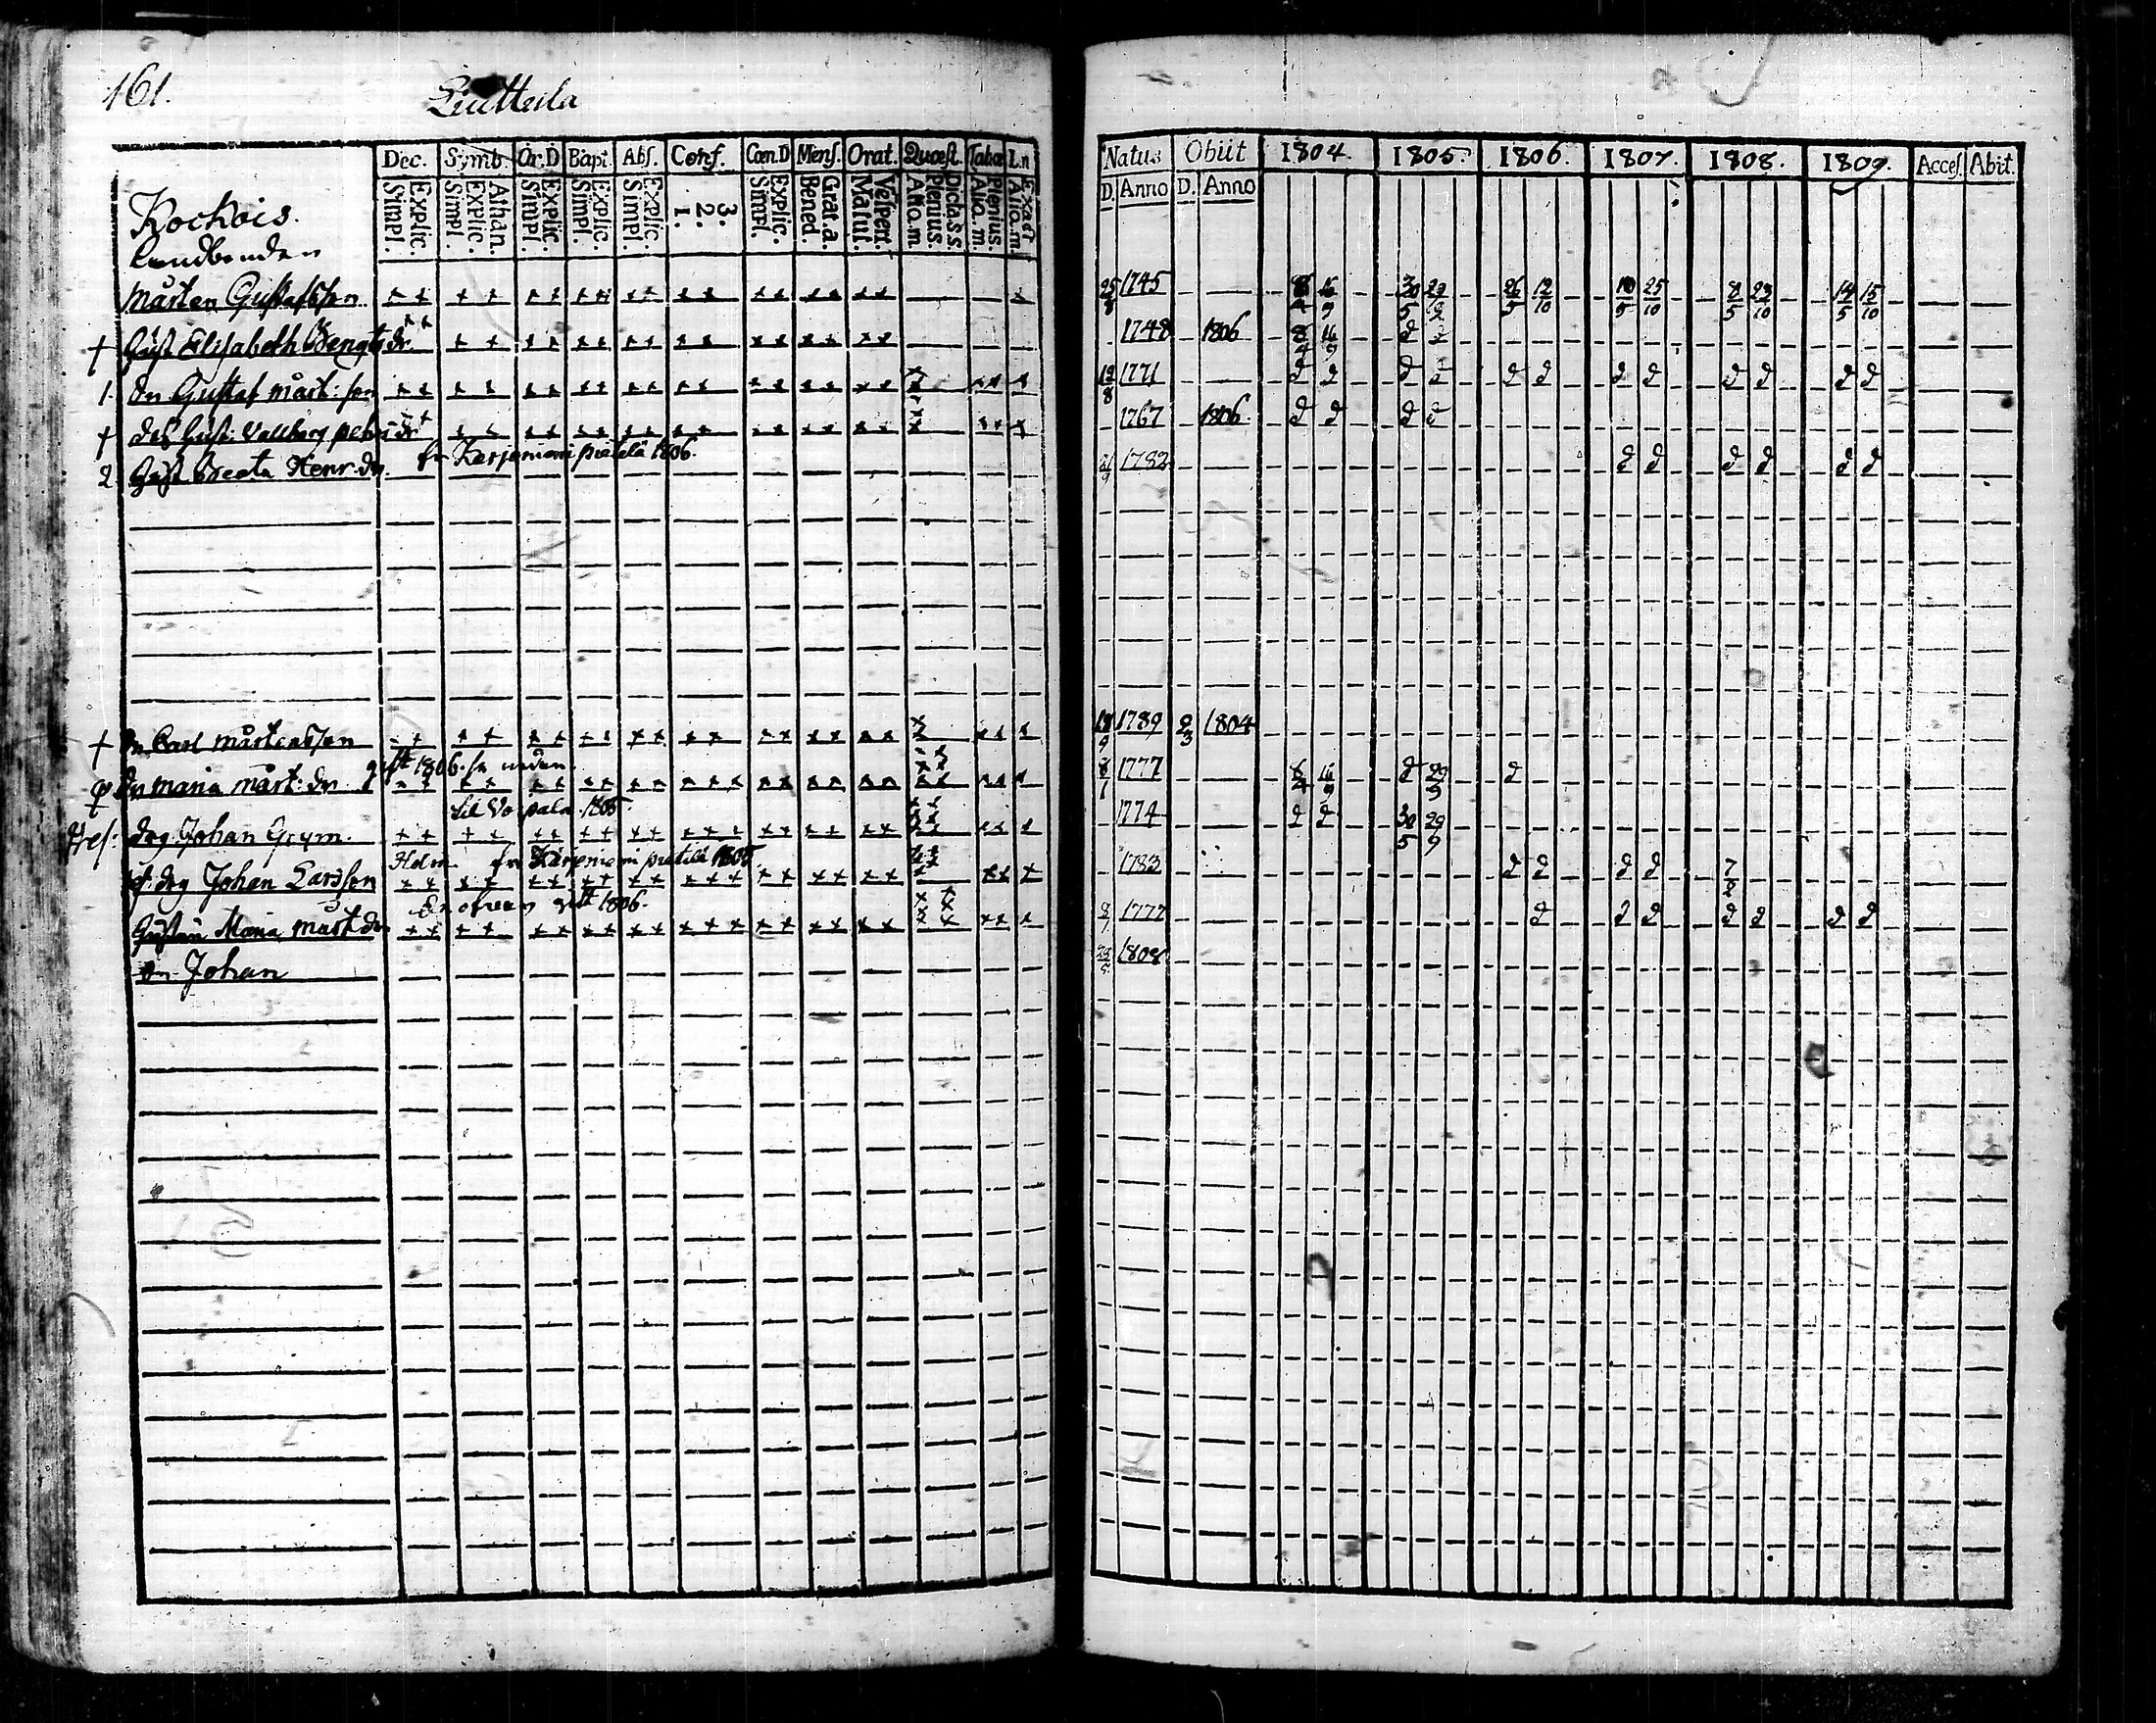 161.
Dec. Symb. Or.D Bapt. Abs. Conf. Cœn.D Mens. Orat. Quæst. Tabæ. Ln
Explic. Simpl. Athan. Explic. Simpl. Explic. Simpl. Explic. Simpl. Explic. Simpl. 3. 2. 1. Explic. Simpl. Grat.a. Bened. Vespert. Matut. Dicta s.s. Plenius. Alia.m. Plenius. Alia.m. Exact Alia.m.
Natus Obiit 1804. 1805. 1806. 1807. 1808. 1809. Acces. Abit.
D. Anno D. Anno
Kockois.
Landbonden
Mårten Gustafsson 25/8 1745 8/4 16/9 30/5 29/9 26/5 12/10 10/5 25/10 8/5 23/10 14/5 15/10
† Hust Elisabeth Bengts dr. 1748 1806 8/4 16/9
1. Sn Gustaf Mårt: son 12/8 1771
† des Hust: Vallborg 1767 1806
fr Karjenieni pietilä 1806.
2. Hust Beata Henr. dr. 1782
† Sn Carl Mårtensson 1789 2/3 1804
gift 1806. se nedan
Dr Maria Mårt: dr 1777 8/4 16/9 29/9
til 1805
dräng Johan Grym. 1774 30/5 29/9
fr Karjenieni pietilä 1805
drg Johan Larsson 1783
ofvan gift 1806.
Hustrun Maria Mårt. dr 1777
Sn Johan 1808